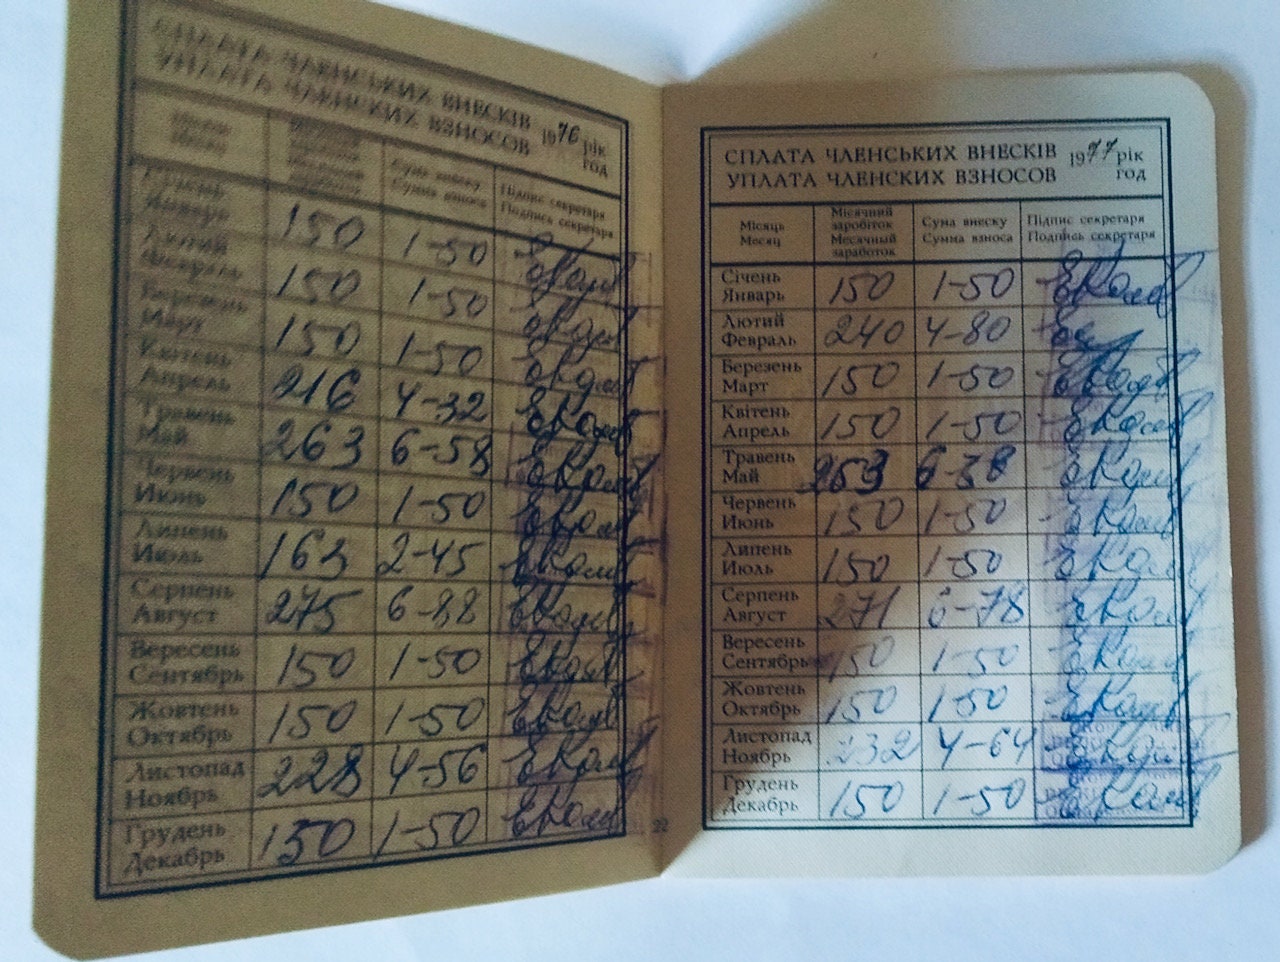 СПЛАТА ЧЛЕНСЬКИХ ВНЕСКІВ 1976 рік
УПЛАТА ЧЛЕНСКИХ ВЗНОСОВ год
Місяць Місячний заробіток Сума внеску Підпис секретаря
Месяц Месячный заработок Сумма взноса Подпись секретаря
Січень Январь 150 1-50
Лютий Февраль 150 1-50
Березень Март 150 1-50
Квітень Апрель 216 4-32
Травень Май 263 6-58
Червень Июнь 150 1-50
Липень Июль 163 2-45
Серпень Август 275 6-88
Вересень Сентябрь 150 1-50
Жовтень Октябрь 150 1-50
Листопад Ноябрь 228 4-56
Грудень Декабрь 150 1-50
22
СПЛАТА ЧЛЕНСЬКИХ ВНЕСКІВ 1977 рік
УПЛАТА ЧЛЕНСКИХ ВЗНОСОВ год
Місяць Місячний заробіток Сума внеску Підпис секретаря
Месяц Месячный заработок Сумма взноса Подпись секретаря
Січень Январь 150 1-50
Лютий Февраль 240 4-80
Березень Март 150 1-50
Квітень Апрель 150 1-50
Травень Май 253 6-38
Червень Июнь 150 1-50
Липень Июль 150 1-50
Серпень Август 271 6-78
Вересень Сентябрь 150 1-50
Жовтень Октябрь 150 1-50
Листопад Ноябрь 232 4-64
Грудень Декабрь 150 1-50